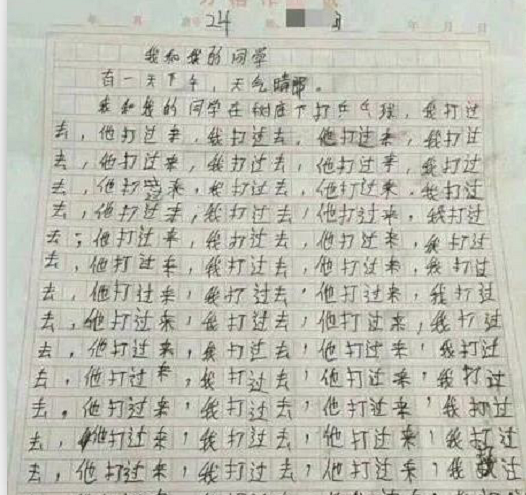 24
我和我的同学
有一天下午，天气晴朗。
我和我的同学在树底下打乒乓球，我打过
去，他打过来，我打过去，他打过来，我打过
去，他打过来，我打过去，他打过来，我打过
去，他打过来，我打过去，他打过来，我打过
去，他打过来，我打过去，他打过来，我打过
去，他打过来，我打过去，他打过来，我打过
去，他打过来，我打过去，他打过来，我打过
去，他打过来，我打过去，他打过来，我打过
去，他打过来，我打过去，他打过来，我打过
去，他打过来，我打过去，他打过来，我打过
去，他打过来，我打过去，他打过来，我打过
去。他打过来，我打过去，他打过来，我打过
去，他打过来，我打过去，他打过来，我打过
去，他打过来，我打过去，他打过来，我打过